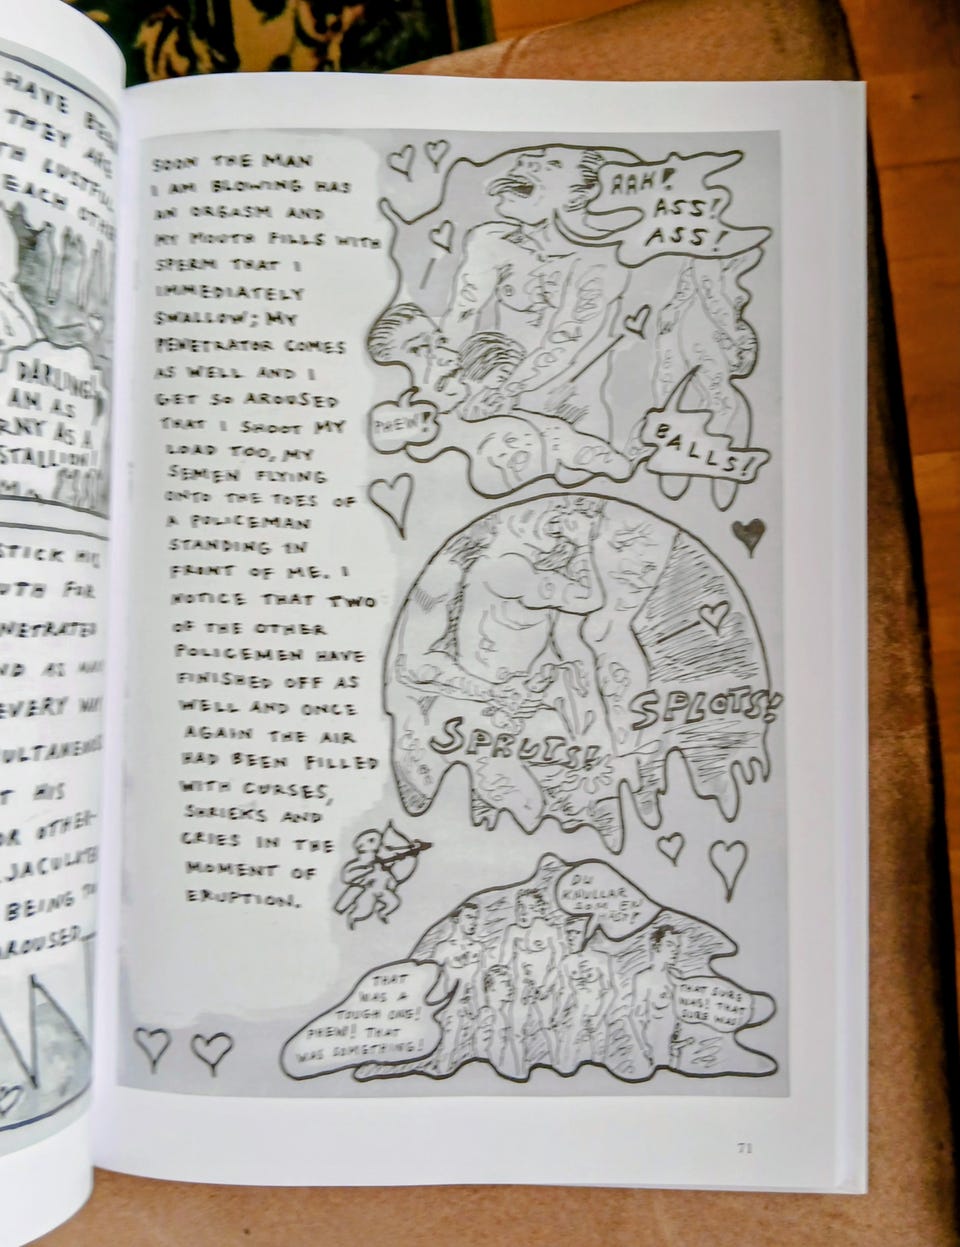 HAVE BEEN
THEY ARE
LUSTFUL
EACH OTHER
DARLING!
AM AS
AS A
STALLION!
STICK HIS
FOR
AND AS
EVERY
HIS
OR OTHER-
BEING
AROUSED
SOON THE MAN
I AM BLOWING HAS
AN ORGASM AND
MY MOUTH FILLS WITH
SPERM THAT I
IMMEDIATELY
SWALLOW; MY
PENETRATOR COMES
AS WELL AND I
GET SO AROUSED
THAT I SHOOT MY
LOAD TOO, MY
SEMEN FLYING
ONTO THE TOES OF
A POLICEMAN
STANDING IN
FRONT OF ME. I
NOTICE THAT TWO
OF THE OTHER
POLICEMEN HAVE
FINISHED OFF AS
WELL AND ONCE
AGAIN THE AIR
HAD BEEN FILLED
WITH CURSES,
SHRIEKS AND
CRIES IN THE
MOMENT OF
ERUPTION.
AAH!
ASS!
ASS!
PHEW!
BALLS!
SPRUTS!
SPLOTS!
DU
KNULLAR
SOM EN
HÄST!
THAT
WAS A
TOUGH ONE!
PHEW! THAT
WAS SOMETHING!
THAT SURE
WAS! THAT
SURE WAS
71